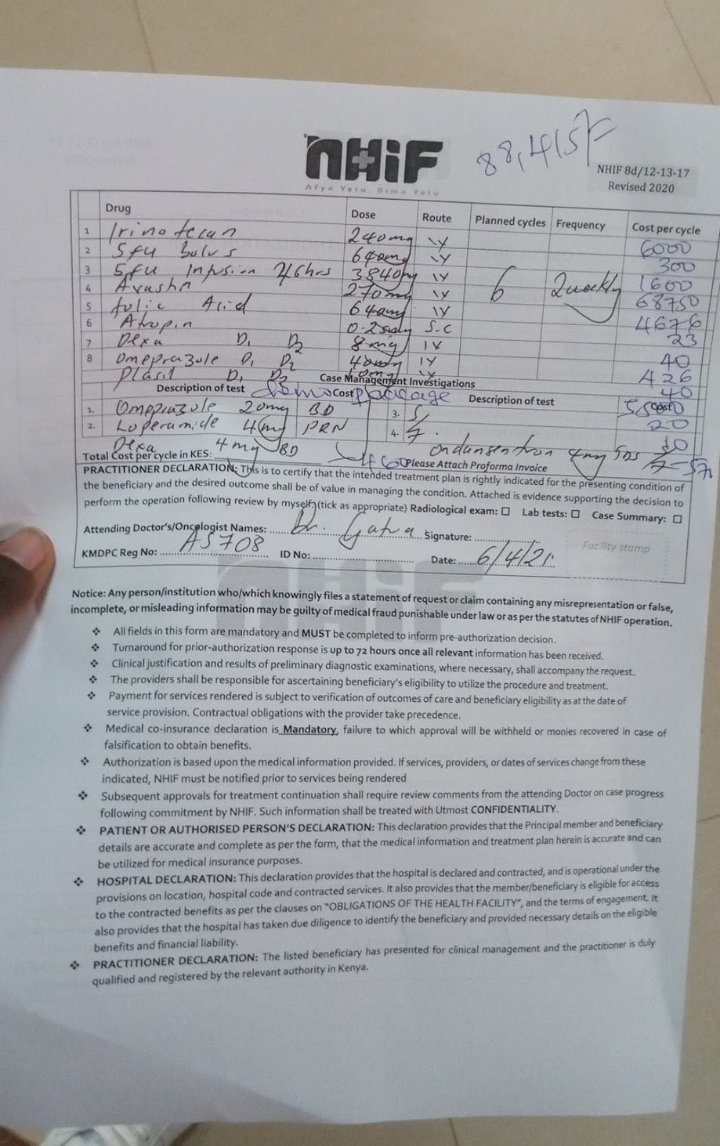 NHIF
Afya Yetu, Bima Yetu
88,415/=
NHIF 8d/12-13-17
Revised 2020
Drug Dose Route Planned cycles Frequency Cost per cycle
1 Irinotecan 240mg IV 6000
2 5fu bolus 640mg IV 300
3 5fu Infusion 46hrs 3840mg IV 6 2weekly 1600
4 Avastin 270mg IV 68750
5 folic Acid 640mg IV 4676
6 Atropin 0.25mg S.C 23
7 Dexa D1 D2 8mg IV 40
8 Omeprazole D1 D2 40mg IV 426
Plasil D1 D2 IV 40
Case Management Investigations
Description of test Cost Description of test Cost
chemo package 5,500
1. Omeprazole 20mg BD 3. 20
2. Loperamide 4mg PRN 4.
Dexa 4mg BD ondansentron 4mg TDS
Total Cost per cycle in KES: Please Attach Proforma Invoice
PRACTITIONER DECLARATION: This is to certify that the intended treatment plan is rightly indicated for the presenting condition of
the beneficiary and the desired outcome shall be of value in managing the condition. Attached is evidence supporting the decision to
perform the operation following review by myself (tick as appropriate) Radiological exam: ☐ Lab tests: ☐ Case Summary: ☐
Attending Doctor's/Oncologist Names: Dr. Signature:
KMDPC Reg No: A5708 ID No: Date: 6/4/21 Facility stamp
Notice: Any person/institution who/which knowingly files a statement of request or claim containing any misrepresentation or false,
incomplete, or misleading information may be guilty of medical fraud punishable under law or as per the statutes of NHIF operation.
❖ All fields in this form are mandatory and MUST be completed to inform pre-authorization decision.
❖ Turnaround for prior-authorization response is up to 72 hours once all relevant information has been received.
❖ Clinical justification and results of preliminary diagnostic examinations, where necessary, shall accompany the request.
❖ The providers shall be responsible for ascertaining beneficiary's eligibility to utilize the procedure and treatment.
❖ Payment for services rendered is subject to verification of outcomes of care and beneficiary eligibility as at the date of
service provision. Contractual obligations with the provider take precedence.
❖ Medical co-insurance declaration is Mandatory, failure to which approval will be withheld or monies recovered in case of
falsification to obtain benefits.
❖ Authorization is based upon the medical information provided. If services, providers, or dates of service change from these
indicated, NHIF must be notified prior to services being rendered
❖ Subsequent approvals for treatment continuation shall require review comments from the attending Doctor on case progress
following commitment by NHIF. Such information shall be treated with Utmost CONFIDENTIALITY.
❖ PATIENT OR AUTHORISED PERSON'S DECLARATION: This declaration provides that the Principal member and beneficiary
details are accurate and complete as per the form, that the medical information and treatment plan herein is accurate and can
be utilized for medical insurance purposes.
❖ HOSPITAL DECLARATION: This declaration provides that the hospital is declared and contracted, and is operational under the
provisions on location, hospital code and contracted services. It also provides that the member/beneficiary is eligible for access
to the contracted benefits as per the clauses on "OBLIGATIONS OF THE HEALTH FACILITY", and the terms of engagement. It
also provides that the hospital has taken due diligence to identify the beneficiary and provided necessary details on the eligible
benefits and financial liability.
❖ PRACTITIONER DECLARATION: The listed beneficiary has presented for clinical management and the practitioner is duly
qualified and registered by the relevant authority in Kenya.